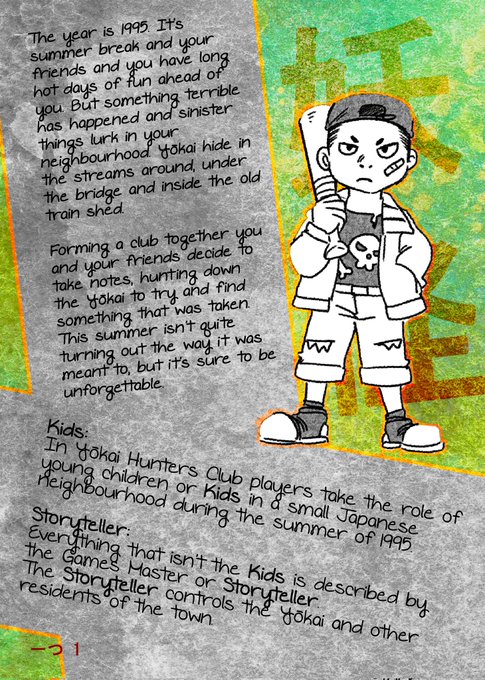 The year is 1995. It's
summer break and your
friends and you have long
hot days of fun ahead of
you. But something terrible
has happened and sinister
things lurk in your
neighbourhood. Yōkai hide in
the streams around, under
the bridge and inside the old
train shed.
Forming a club together you
and your friends decide to
take notes, hunting down
the Yōkai to try and find
something that was taken.
This summer isn't quite
turning out the way it was
meant to, but it's sure to be
unforgettable.
妖
怪
Kids:
In Yōkai Hunters Club players take the role of
young children or Kids in a small Japanese
neighbourhood during the summer of 1995.
Storyteller:
Everything that isn't the Kids is described by
the Games Master or Storyteller.
The Storyteller controls the Yōkai and other
residents of the town.
一つ 1